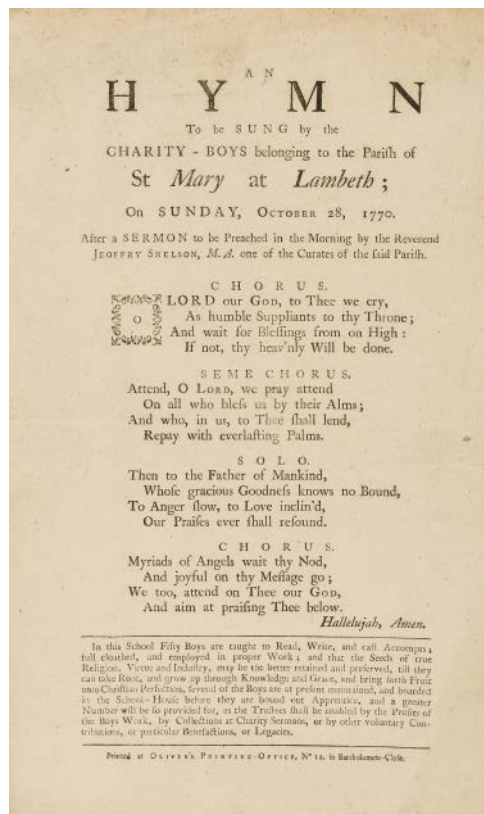 AN
HYMN
To be SUNG by the
CHARITY - BOYS belonging to the Pariſh of
St Mary at Lambeth ;
On SUNDAY, OCTOBER 28, 1770.
After a SERMON to be Preached in the Morning by the Reverend
JEOFFRY SNELSON, M. A. one of the Curates of the ſaid Pariſh.
CHORUS.
O LORD our GOD, to Thee we cry,
As humble Suppliants to thy Throne ;
And wait for Bleſſings from on High :
If not, thy heav'nly Will be done.
SEME CHORUS.
Attend, O LORD, we pray attend
On all who bleſs us by their Alms ;
And who, in us, to Thee ſhall lend,
Repay with everlaſting Palms.
SOLO.
Then to the Father of Mankind,
Whoſe gracious Goodneſs knows no Bound,
To Anger ſlow, to Love inclin'd,
Our Praiſes ever ſhall reſound.
CHORUS.
Myriads of Angels wait thy Nod,
And joyful on thy Meſſage go ;
We too, attend on Thee our GOD,
And aim at praiſing Thee below.
Hallelujah, Amen.
In this School Fifty Boys are taught to Read, Write, and caſt Accompts ;
full cloathed, and employed in proper Work ; and that the Seeds of true
Religion, Virtue and Induſtry, may be the better retained and preſerved, till they
can take Root, and grow up through Knowledge and Grace, and bring forth Fruit
unto Chriſtian Perfection, ſeveral of the Boys are at preſent maintained, and boarded
in the School-Houſe before they are bound out Apprentice, and a greater
Number will be ſo provided for, as the Truſtees ſhall be enabled by the Profits of
the Boys Work, by Collections at Charity Sermons, or by other voluntary Con-
tributions, or particular Benefactions, or Legacies.
Printed at OLIVER's PRINTING-OFFICE, Nº 12. in Bartholomew-Cloſe.